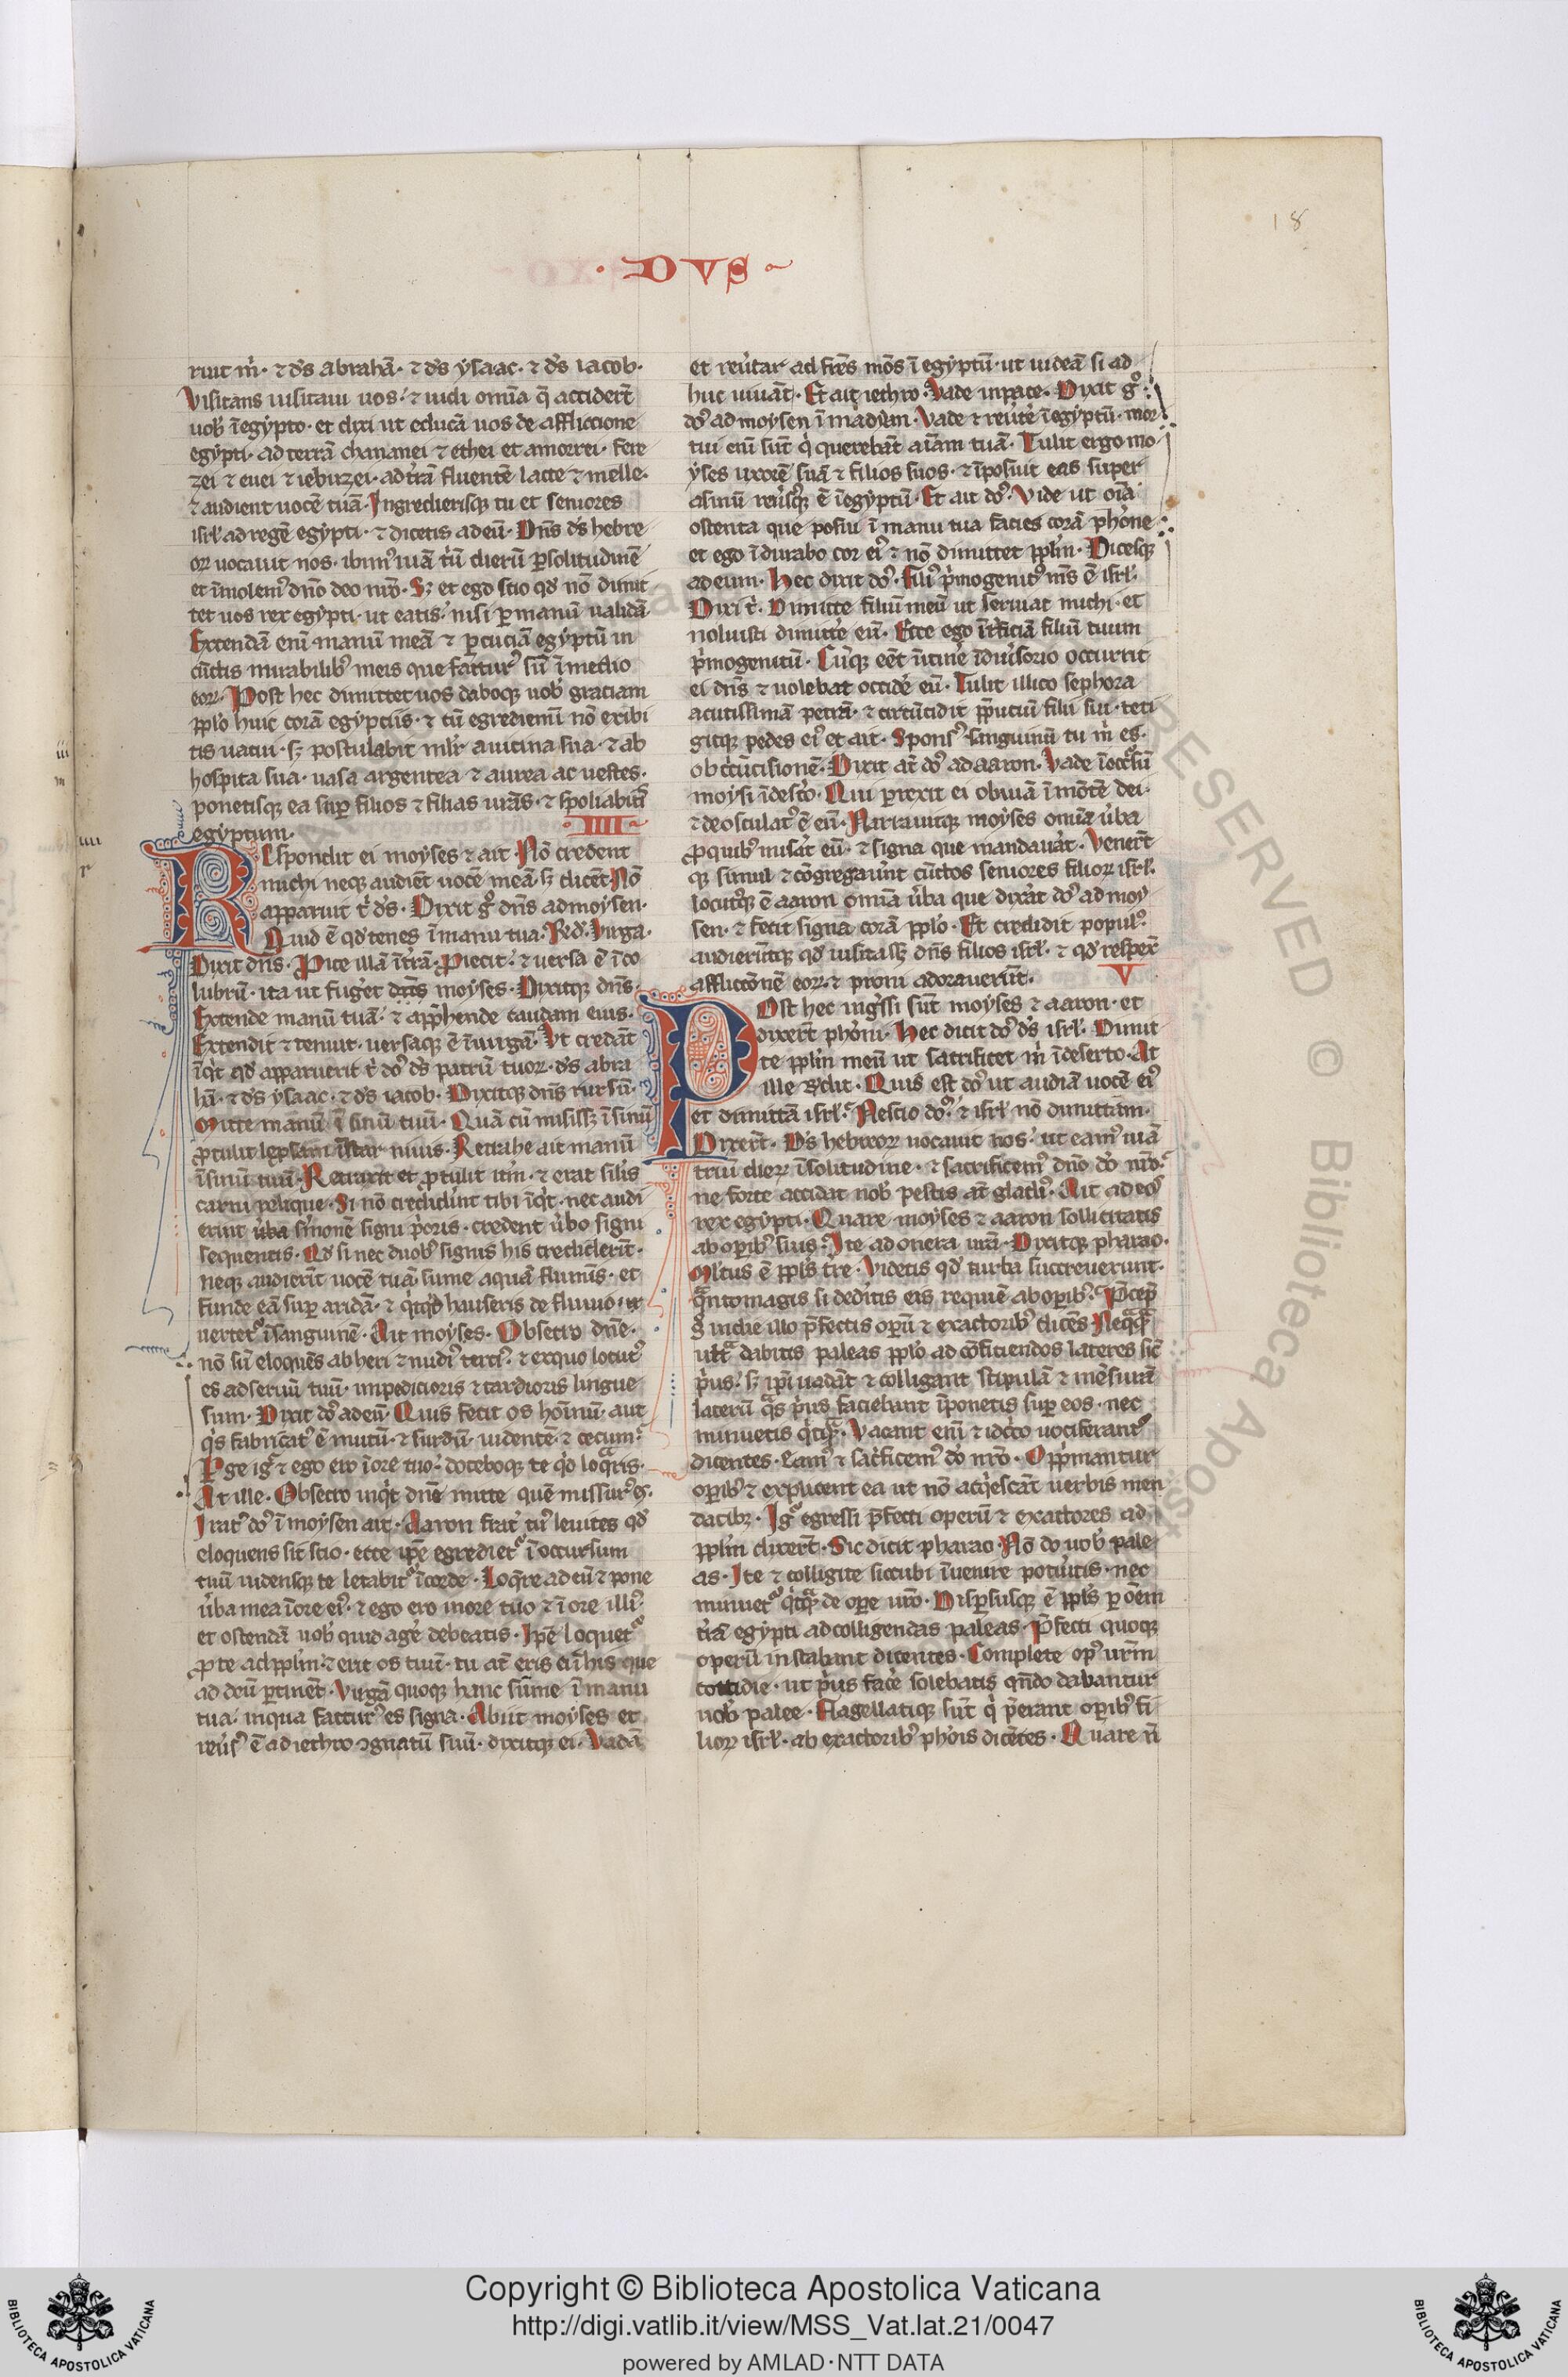 18
· DVS
ruit m̍· ⁊ d̄s abrahā· ⁊ d̄s ysaac· ⁊ d̄s iacob·
Visitans uisitaui uos· ⁊ uidi omīa q̄ accider̄t
uob̍ ī egypto· et dixi ut educā uos de affliccione
egypti· ad terrā chananei ⁊ ethei et amorrei· fere
zei ⁊ euei ⁊ iebuzei· ad t̍rā fluentē lacte ⁊ melle·
⁊ audient uocē tuā· Ingredierisqȝ tu et seniores
isrl̄· ad regē egypti· ⁊ dicetis ad eū· Dn̄s d̄s hebre
oꝝ uocauit nos· ibim᷒ uiā t̍ū dierū ꝑ solitudinē
et īmolem᷒ dn̄o deo nr̄o· Sȝ et ego scio qd̄ nō dimit
tet uos rex egypti· ut eatis· nisi ꝑ manū ualidā·
Extendā enī manū meā ⁊ ꝑcutiā egyptū in
cūctis mirabilib᷒ meis que factur᷒ sū ī medio
eoꝝ· Post hec dimittet uos daboqȝ uob̍ gratiam
ppl̄o huic corā egyptiis· ⁊ cū egrediem̄i nō exibi
tis uacui· sȝ postulabit ml̍r a uicina sua· ⁊ ab
hospita sua· uasa argentea ⁊ aurea ac uestes·
ponetisqȝ ea suꝑ filios ⁊ filias ur̄as· ⁊ spoliabit̍
egyptum·
IIII
REspondit ei moyses ⁊ ait· Nō credent
michi neqȝ audiēt uocē meā· sȝ dicēt· Nō
apparuit t̍ d̄s· Dixit g̊ dn̄s ad moysen·
Quid ē qd̄ tenes ī manu tua· Rēd· Virga·
Dixit dn̄s· Piice illā ī t̍rā· Piecit· ⁊ uersa ē ī co
lubrū· ita ut fuget dn̄s moyses· Dixitqȝ dn̄s·
Extende manū tuā· ⁊ app̄hende caudam eius·
Extendit ⁊ tenuit· uersaqȝ ē ī uirgā· Vt credāt
īq̍t qd̄ apparuerit t̍ do᷒ d̄s patrū tuoꝝ· d̄s abra
hā· ⁊ d̄s ysaac· ⁊ d̄s iacob· Dixitqȝ dn̄s rursū·
Mitte manū ī sinū tuū· Quā cū misissȝ ī sinū
ꝓtulit leprosam īstar niuis· Retrahe ait manū
ī sinū tuū· Retraxit et ꝓtulit it̍m· ⁊ erat silis
carni relique· Si nō crediderint tibi īq̍t· nec audi
erint u̍ba sm̍onē signi p̍oris· credent u̍bo signi
sequentis· Qd̄ si nec duob᷒ signis his crediderīt·
neqȝ audierīt uocē tuā· sume aquā flumīs· et
funde eā suꝑ aridā· ⁊ q̍cq̍d hauseris de fluuio ·
uertet᷒ ī sanguinē· Ait moyses· Obsecro dn̄e·
nō sū eloquēs ab heri ⁊ nudi᷒ terci᷒· ⁊ ex quo locut᷒
es ad seruū tuū· impeditioris ⁊ tardioris lingue
sum· Dixit do᷒ ad eū· Quis fecit os homīnū· aut
q̍s fabricat᷒ ē mutū· ⁊ surdū· uidentē· ⁊ cecum·
Pge ig̍ ⁊ ego ero ī ore tuo· doceboqȝ te q̍d loq̄ris·
At ille· Obsecro inq̍t dn̄e mitte quē missur᷒ es·
Irat᷒ do᷒ ī moysen ait· Aaron frat̍ tu᷒ leuites qd̄
eloquens sit scio· ecce ip̄e egrediet᷒ ī occursum
tuū uidensqȝ te letabit᷒ ī corde· Loq̄re ad eū ⁊ pone
u̍ba mea ī ore ei᷒· ⁊ ego ero in ore tuo ⁊ ī ore illi᷒·
et ostendā uob̍ quid age̍ debeatis· Ip̄e loquet᷒
ꝓ te ad ppl̄m· ⁊ erit os tuū· tu at̄ eris ei ī his que
ad deū ꝑtinēt· Virgā quoqȝ hanc sūme ī manu
tua· in qua factur᷒ es signa· Abiit moyses et
reu̍s᷒ ē ad iethro ꝯgnatū suū· dixitqȝ ei· Vadā
et reu̍tar ad fr̄es mōs ī egyptū· ut uideā si ad
huc uiuāt· Et ait iethro· Vade in pace· Dixit g̊·
do᷒ ad moysen ī madyan· Vade ⁊ reu̍te̍ ī egyptū· mor
tui enī sūt q̍ querebāt aīam tuā· Tulit ergo mo
yses uxorē suā ⁊ filios suos· ⁊ īposuit eas super
asinū reu̍sq᷒ȝ ē ī egyptū· Et ait do᷒· Vide ut oīa
ostenta que posui ī manu tua facies corā ph̍one
et ego īdurabo cor ei᷒ ⁊ nō dimittet ppl̄m· Dicesqȝ
ad eum· Hec dixit do᷒· Fili᷒ p̍mogenit᷒ m̄s ē isrl̄·
Dixi t̍· Dimitte filiū meū ut seruiat michi· et
noluisti dimitte̍ eū· Ecce ego īt̍ficiā filiū tuum
p̍mogenitū· Cūqȝ eēt ītine̍ ī diu̍sorio occurrit
ei dn̄s ⁊ uolebat occide̍ eū· Tulit illico sephora
acutissimā petrā· ⁊ circūcidit p̄putiū filii sui· teti
gitqȝ pedes ei᷒ et ait· Spons᷒ sanguinū tu m̍ es·
ob c̍cūcisionē· Dixit at̄ do᷒ ad aaron· Vade ī occ̊sū
moysi ī des̍to· Qui ꝑrexit ei obuiā ī mōtē dei·
⁊ deosculat᷒ ē eū· Narrauitqȝ moyses omīa u̍ba
ꝓ quib᷒ misa̍t eū· ⁊ signa que mandaua̍t· Vener̄t
qȝ simul ⁊ cōgregau̍nt cūctos seniores filioꝝ isrl̄·
locut᷒qȝ ē aaron omīa u̍ba que dixa̍t do᷒ ad moy
sen· ⁊ fecit signa corā ppl̄o· Et credidit popul᷒·
audierūtqȝ qd̄ uisitassȝ dn̄s filios isrl̄· ⁊ qd̄ respex̄
afflictōnē eoꝝ· ⁊ proni adorauerūt·
V
POst hec ing̍ssi sūt moyses ⁊ aaron· et
dixer̄t ph̍oni· Hec dicit do᷒ d̄s isrl̄· Dimit
te ppl̄m meū ut sacrificet m̍ ī deserto· At
ille Rn̄dit· Quis est do᷒ ut audiā uocē ei᷒
et dimittā isrl̄· Nescio do᷒· ⁊ isrl̄ nō dimittam·
Dixer̄t· D̄s hebreoꝝ uocauit nos· ut eam᷒ uiā
triū dieꝝ ī solitudine· ⁊ sacrificem᷒ dn̄o do᷒ nr̄o·
ne forte accidat nob̍ pestis at̄ gladi᷒· Ait ad eo᷒
rex egypti· Quare moyses ⁊ aaron sollicitatis
ab oꝑib᷒ suis· Ite ad onera ur̄a· Dixitqȝ pharao·
Ml̍tus ē ppl̄s t̍re· Videtis qd̄ turba succreuerunt·
q̄ntomagis si dedi̍tis eis requiē ab oꝑib᷒· P̄cep̄
g̊ in die illo p̄fectis oꝑū ⁊ exactorib᷒ dicēs· Neq̄q̄
ult̄ dabitis paleas ppl̄o ad cōficiendos lateres sic̄
p̍us· sȝ ip̄i uadāt ⁊ colligant stipulā ⁊ mēsurā
laterū q̄s p̍us faciebant īponetis suꝑ eos· nec
minuetis q̍cq̄· Vacant enī ⁊ idc̍co uociferant᷒
dicentes· Eam᷒ ⁊ sac̍ficem᷒ do᷒ nr̄o· Opp̍mantur
oꝑib᷒ ⁊ expleent ea ut nō acq̍escāt uerbis men
dacibȝ· Ig̊ egressi p̄fecti operū ⁊ exactores ad
ppl̄m dixer̄t· Sic dicit pharao· Nō do uob̍ pale
as· Ite ⁊ colligite sicubi īuenire potu̍itis· nec
minuet᷒ q̍cq̄ de oꝑe ur̄o· Disꝑsusqȝ ē ppl̄s ꝑ oēm
t̍rā egypti ad colligendas paleas· P̄fecti quoqȝ
operū instabant dicentes· Complete op᷒ ur̄m
cottidie· ut p̍us face̍ solebatis qn̄do dabantur
uob̍ palee· Flagellatiqȝ sūt q̍ p̄erant oꝑib᷒ fi
lioꝝ isrl̄· ab exactorib᷒ ph̍ois dicētes· Quare n̄
Copyright © Biblioteca Apostolica Vaticana
http://digi.vatlib.it/view/MSS_Vat.lat.21/0047
powered by AMLAD·NTT DATA
BIBLIOTECA APOSTOLICA VATICANA
BIBLIOTECA APOSTOLICA VATICANA